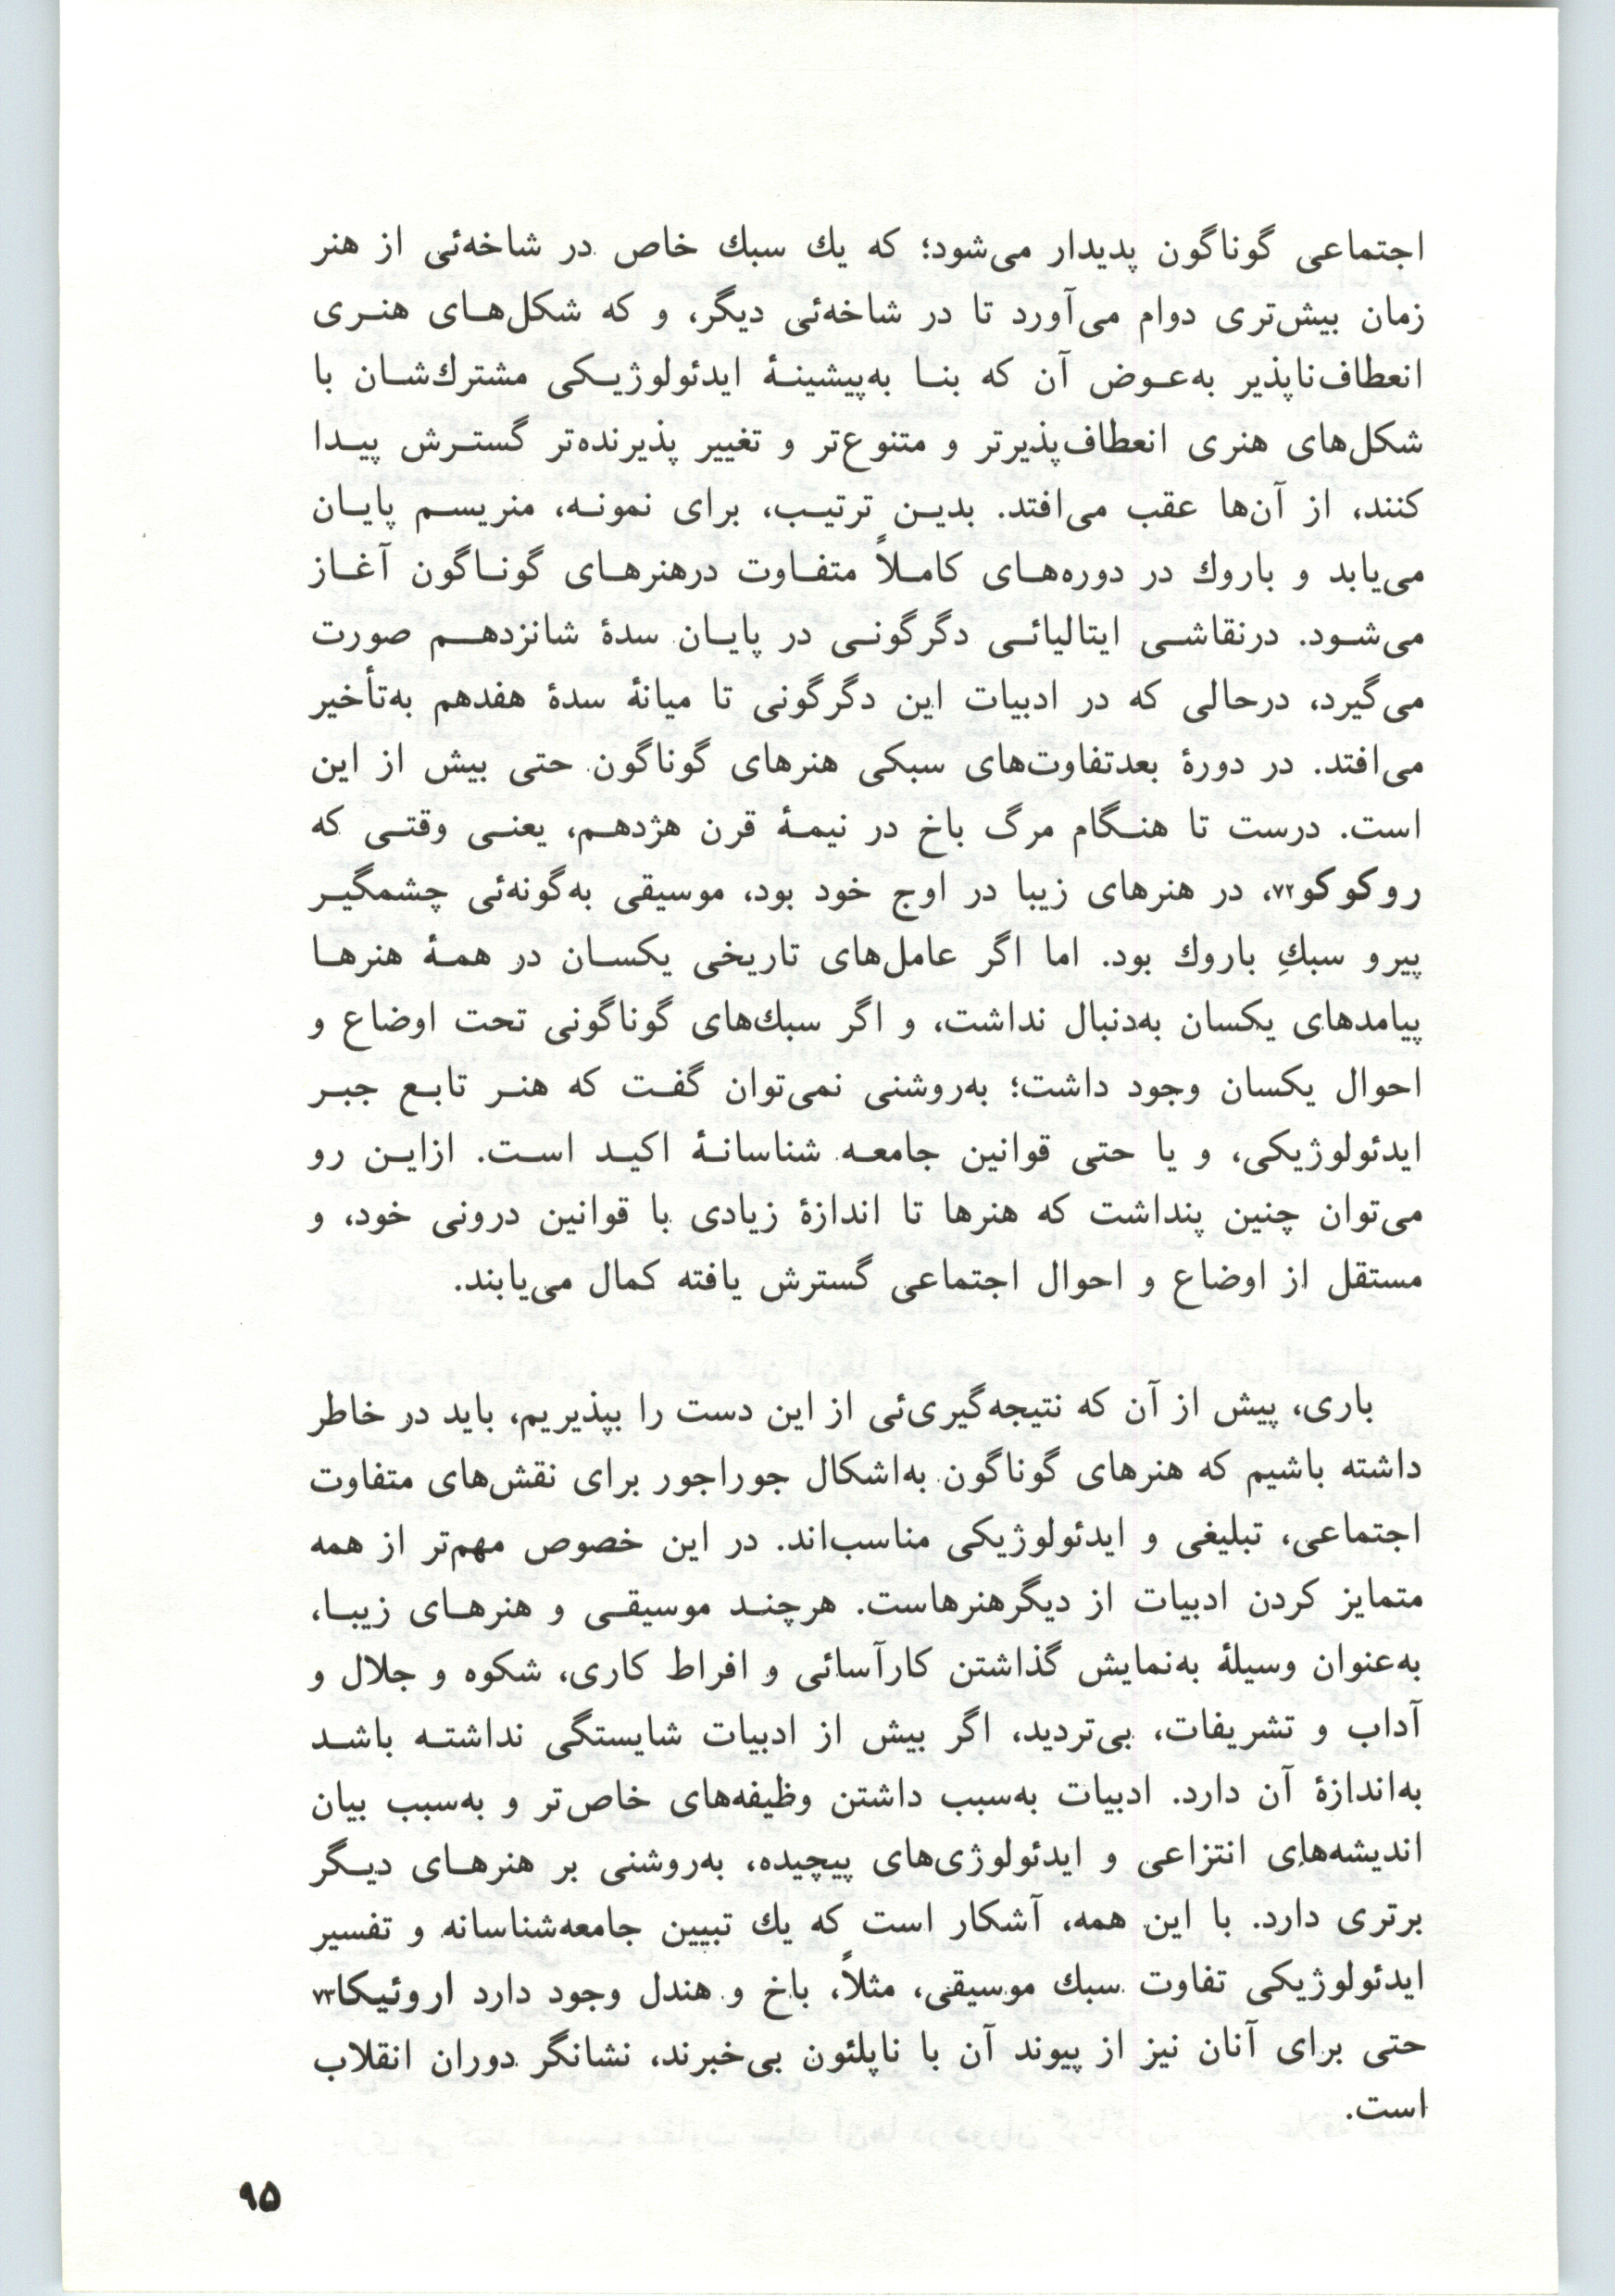 اجتماعی گوناگون پدیدار می‌شود؛ که یك سبك خاص در شاخه‌ئی از هنر
زمان بیش‌تری دوام می‌آورد تا در شاخه‌ئی دیگر، و که شکل‌های هنری
انعطاف‌ناپذیر به‌عوض آن که بنا به‌پیشینهٔ ایدئولوژیکی مشترك‌شان با
شکل‌های هنری انعطاف‌پذیرتر و متنوع‌تر و تغییر پذیرنده‌تر گسترش پیدا
کنند، از آن‌ها عقب می‌افتد. بدین ترتیب، برای نمونه، منریسم پایان
می‌یابد و باروك در دوره‌های کاملاً متفاوت درهنرهای گوناگون آغاز
می‌شود. درنقاشی ایتالیائی دگرگونی در پایان سدهٔ شانزدهم صورت
می‌گیرد، درحالی که در ادبیات این دگرگونی تا میانهٔ سدهٔ هفدهم به‌تأخیر
می‌افتد. در دورهٔ بعدتفاوت‌های سبکی هنرهای گوناگون حتی بیش از این
است. درست تا هنگام مرگ باخ در نیمهٔ قرن هژدهم، یعنی وقتی که
روکوکو۷۲، در هنرهای زیبا در اوج خود بود، موسیقی به‌گونه‌ئی چشمگیر
پیرو سبكِ باروك بود. اما اگر عامل‌های تاریخی یکسان در همهٔ هنرها
پیامدهای یکسان به‌دنبال نداشت، و اگر سبك‌های گوناگونی تحت اوضاع و
احوال یکسان وجود داشت؛ به‌روشنی نمی‌توان گفت که هنر تابع جبر
ایدئولوژیکی، و یا حتی قوانین جامعه شناسانهٔ اکید است. ازاین رو
می‌توان چنین پنداشت که هنرها تا اندازهٔ زیادی با قوانین درونی خود، و
مستقل از اوضاع و احوال اجتماعی گسترش یافته کمال می‌یابند.
باری، پیش از آن که نتیجه‌گیری‌ئی از این دست را بپذیریم، باید در خاطر
داشته باشیم که هنرهای گوناگون به‌اشکال جوراجور برای نقش‌های متفاوت
اجتماعی، تبلیغی و ایدئولوژیکی مناسب‌اند. در این خصوص مهم‌تر از همه
متمایز کردن ادبیات از دیگرهنرهاست. هرچند موسیقی و هنرهای زیبا،
به‌عنوان وسیلهٔ به‌نمایش گذاشتن کارآسائی و افراط کاری، شکوه و جلال و
آداب و تشریفات، بی‌تردید، اگر بیش از ادبیات شایستگی نداشته باشد
به‌اندازهٔ آن دارد. ادبیات به‌سبب داشتن وظیفه‌های خاص‌تر و به‌سبب بیان
اندیشه‌های انتزاعی و ایدئولوژی‌های پیچیده، به‌روشنی بر هنرهای دیگر
برتری دارد. با این همه، آشکار است که یك تبیین جامعه‌شناسانه و تفسیر
ایدئولوژیکی تفاوت سبك موسیقی، مثلاً، باخ و هندل وجود دارد اروئیکا۷۳
حتی برای آنان نیز از پیوند آن با ناپلئون بی‌خبرند، نشانگر دوران انقلاب
است.
۹۵